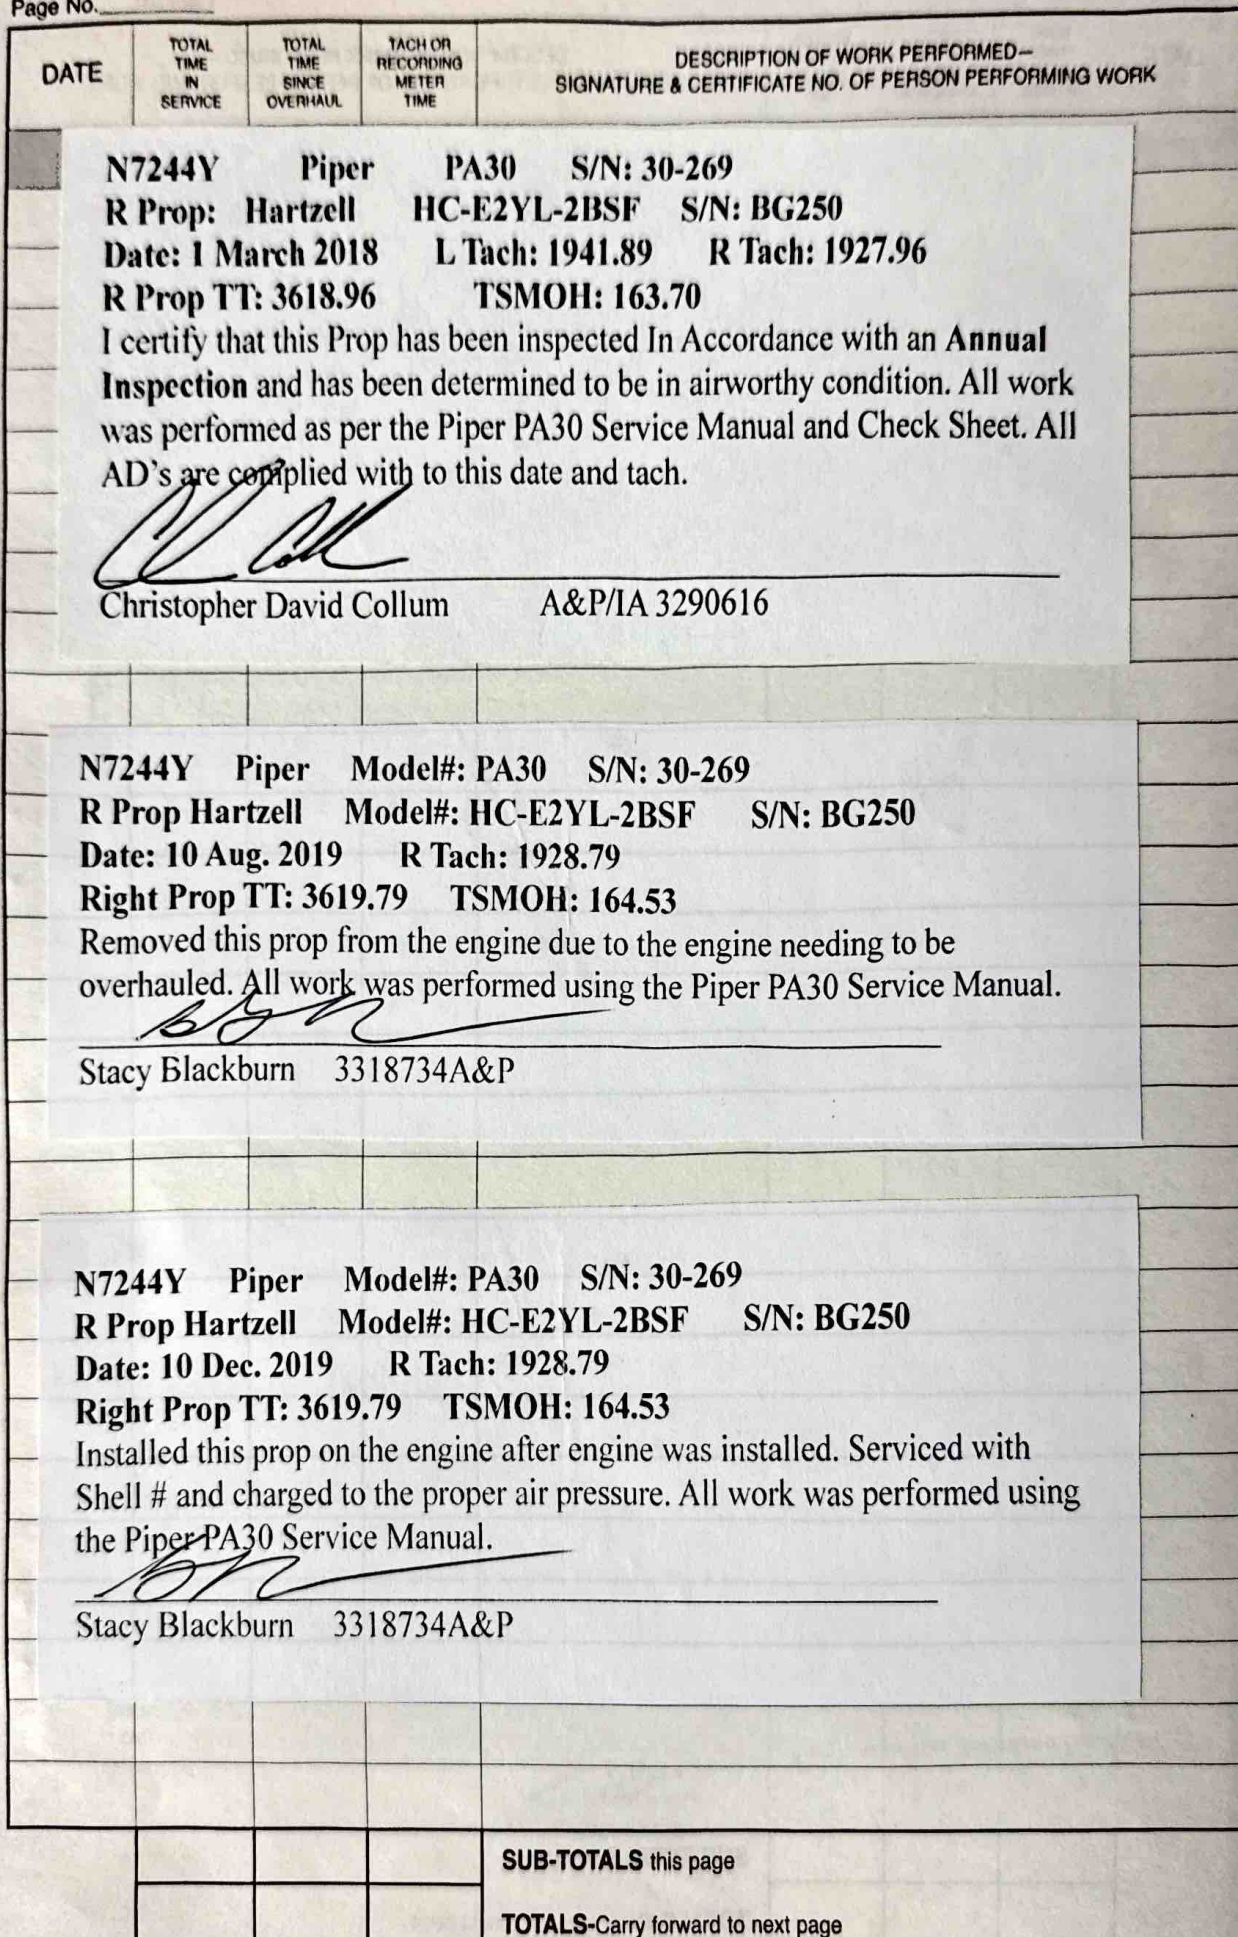 Page No.
DATE
TOTAL
TIME
IN
SERVICE
TOTAL
TIME
SINCE
OVERHAUL
TACH OR
RECORDING
METER
TIME
DESCRIPTION OF WORK PERFORMED—
SIGNATURE & CERTIFICATE NO. OF PERSON PERFORMING WORK
N7244Y Piper PA30 S/N: 30-269
R Prop: Hartzell HC-E2YL-2BSF S/N: BG250
Date: 1 March 2018 L Tach: 1941.89 R Tach: 1927.96
R Prop TT: 3618.96 TSMOH: 163.70
I certify that this Prop has been inspected In Accordance with an Annual
Inspection and has been determined to be in airworthy condition. All work
was performed as per the Piper PA30 Service Manual and Check Sheet. All
AD's are complied with to this date and tach.
Christopher David Collum A&P/IA 3290616
N7244Y Piper Model#: PA30 S/N: 30-269
R Prop Hartzell Model#: HC-E2YL-2BSF S/N: BG250
Date: 10 Aug. 2019 R Tach: 1928.79
Right Prop TT: 3619.79 TSMOH: 164.53
Removed this prop from the engine due to the engine needing to be
overhauled. All work was performed using the Piper PA30 Service Manual.
Stacy Blackburn 3318734A&P
N7244Y Piper Model#: PA30 S/N: 30-269
R Prop Hartzell Model#: HC-E2YL-2BSF S/N: BG250
Date: 10 Dec. 2019 R Tach: 1928.79
Right Prop TT: 3619.79 TSMOH: 164.53
Installed this prop on the engine after engine was installed. Serviced with
Shell # and charged to the proper air pressure. All work was performed using
the Piper PA30 Service Manual.
Stacy Blackburn 3318734A&P
SUB-TOTALS this page
TOTALS-Carry forward to next page